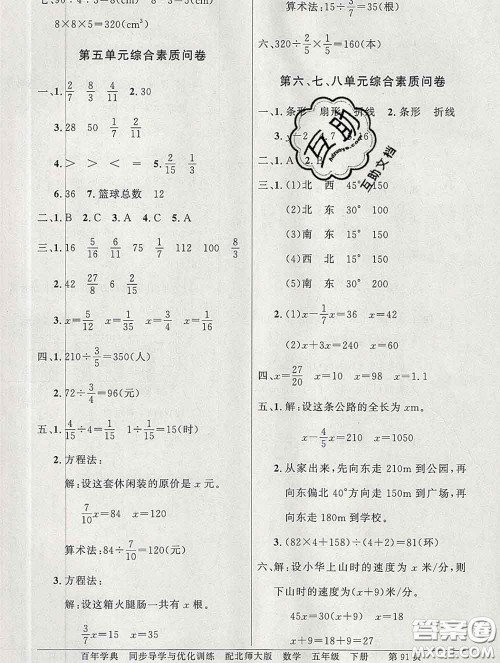 8×8×5=320(cm²)
第五单元综合素质问卷
一、1. 2/7 8/3 3/8 2. 30
3. 28 50 1/7 2/3
4. > > < = 5. 2/15 1/3
6. 36 7. 篮球总数 12
二、1. B 2. C 3. A 4. C 5. B
三、1. 16 5/16 6/11 7/11 112 100 8/3
2. 42 27/8 6 2/15
3. x=5/12 x=1/35 x=1/4
四、1. 210÷3/5=350(人)
2. 72÷3/4=96(元)
五、1. 4/15÷4=1/15 1÷1/15=15(时)
2. 方程法:
解:设这套休闲装的原价是 x 元。
7/10 x=84 x=120
算术法:84÷7/10=120(元)
3. 方程法:
解:设这箱火腿肠一共有 x 根。
算术法:15÷3/7=35(根)
六、320÷2/5×1/5=160(本)
第六、七、八单元综合素质问卷
一、1. 条形 扇形 折线 2. 条形 折线
二、1. A
三、1. (1)北 西 45° 150
(2)北 东 30° 150
(3)南 东 15° 150
(4)南 西 30° 100
(5)南 东 30° 150
2. (1)x-1/7x=36 x=42
(2)x+3x=240 x=60
四、x=27/20 x=10 x=98 x=1.1
五、1. 解:设这条公路的全长为 x m。
x-4/5x=350 x=1750
2. 从家出来,先向东走 210m 到公园,再
向东偏北 40°方向走 150m 到广场,再
向东走 180m 到学校。
3. (82×4+158)÷(4+2)=81(环)
六、解:设小华上山时的速度为 x m/时,则
下山时的速度为
百年学典 同步导学与优化训练 配北师大版 数学 五年级 下册 第91页
互助
互助文档
答案圈